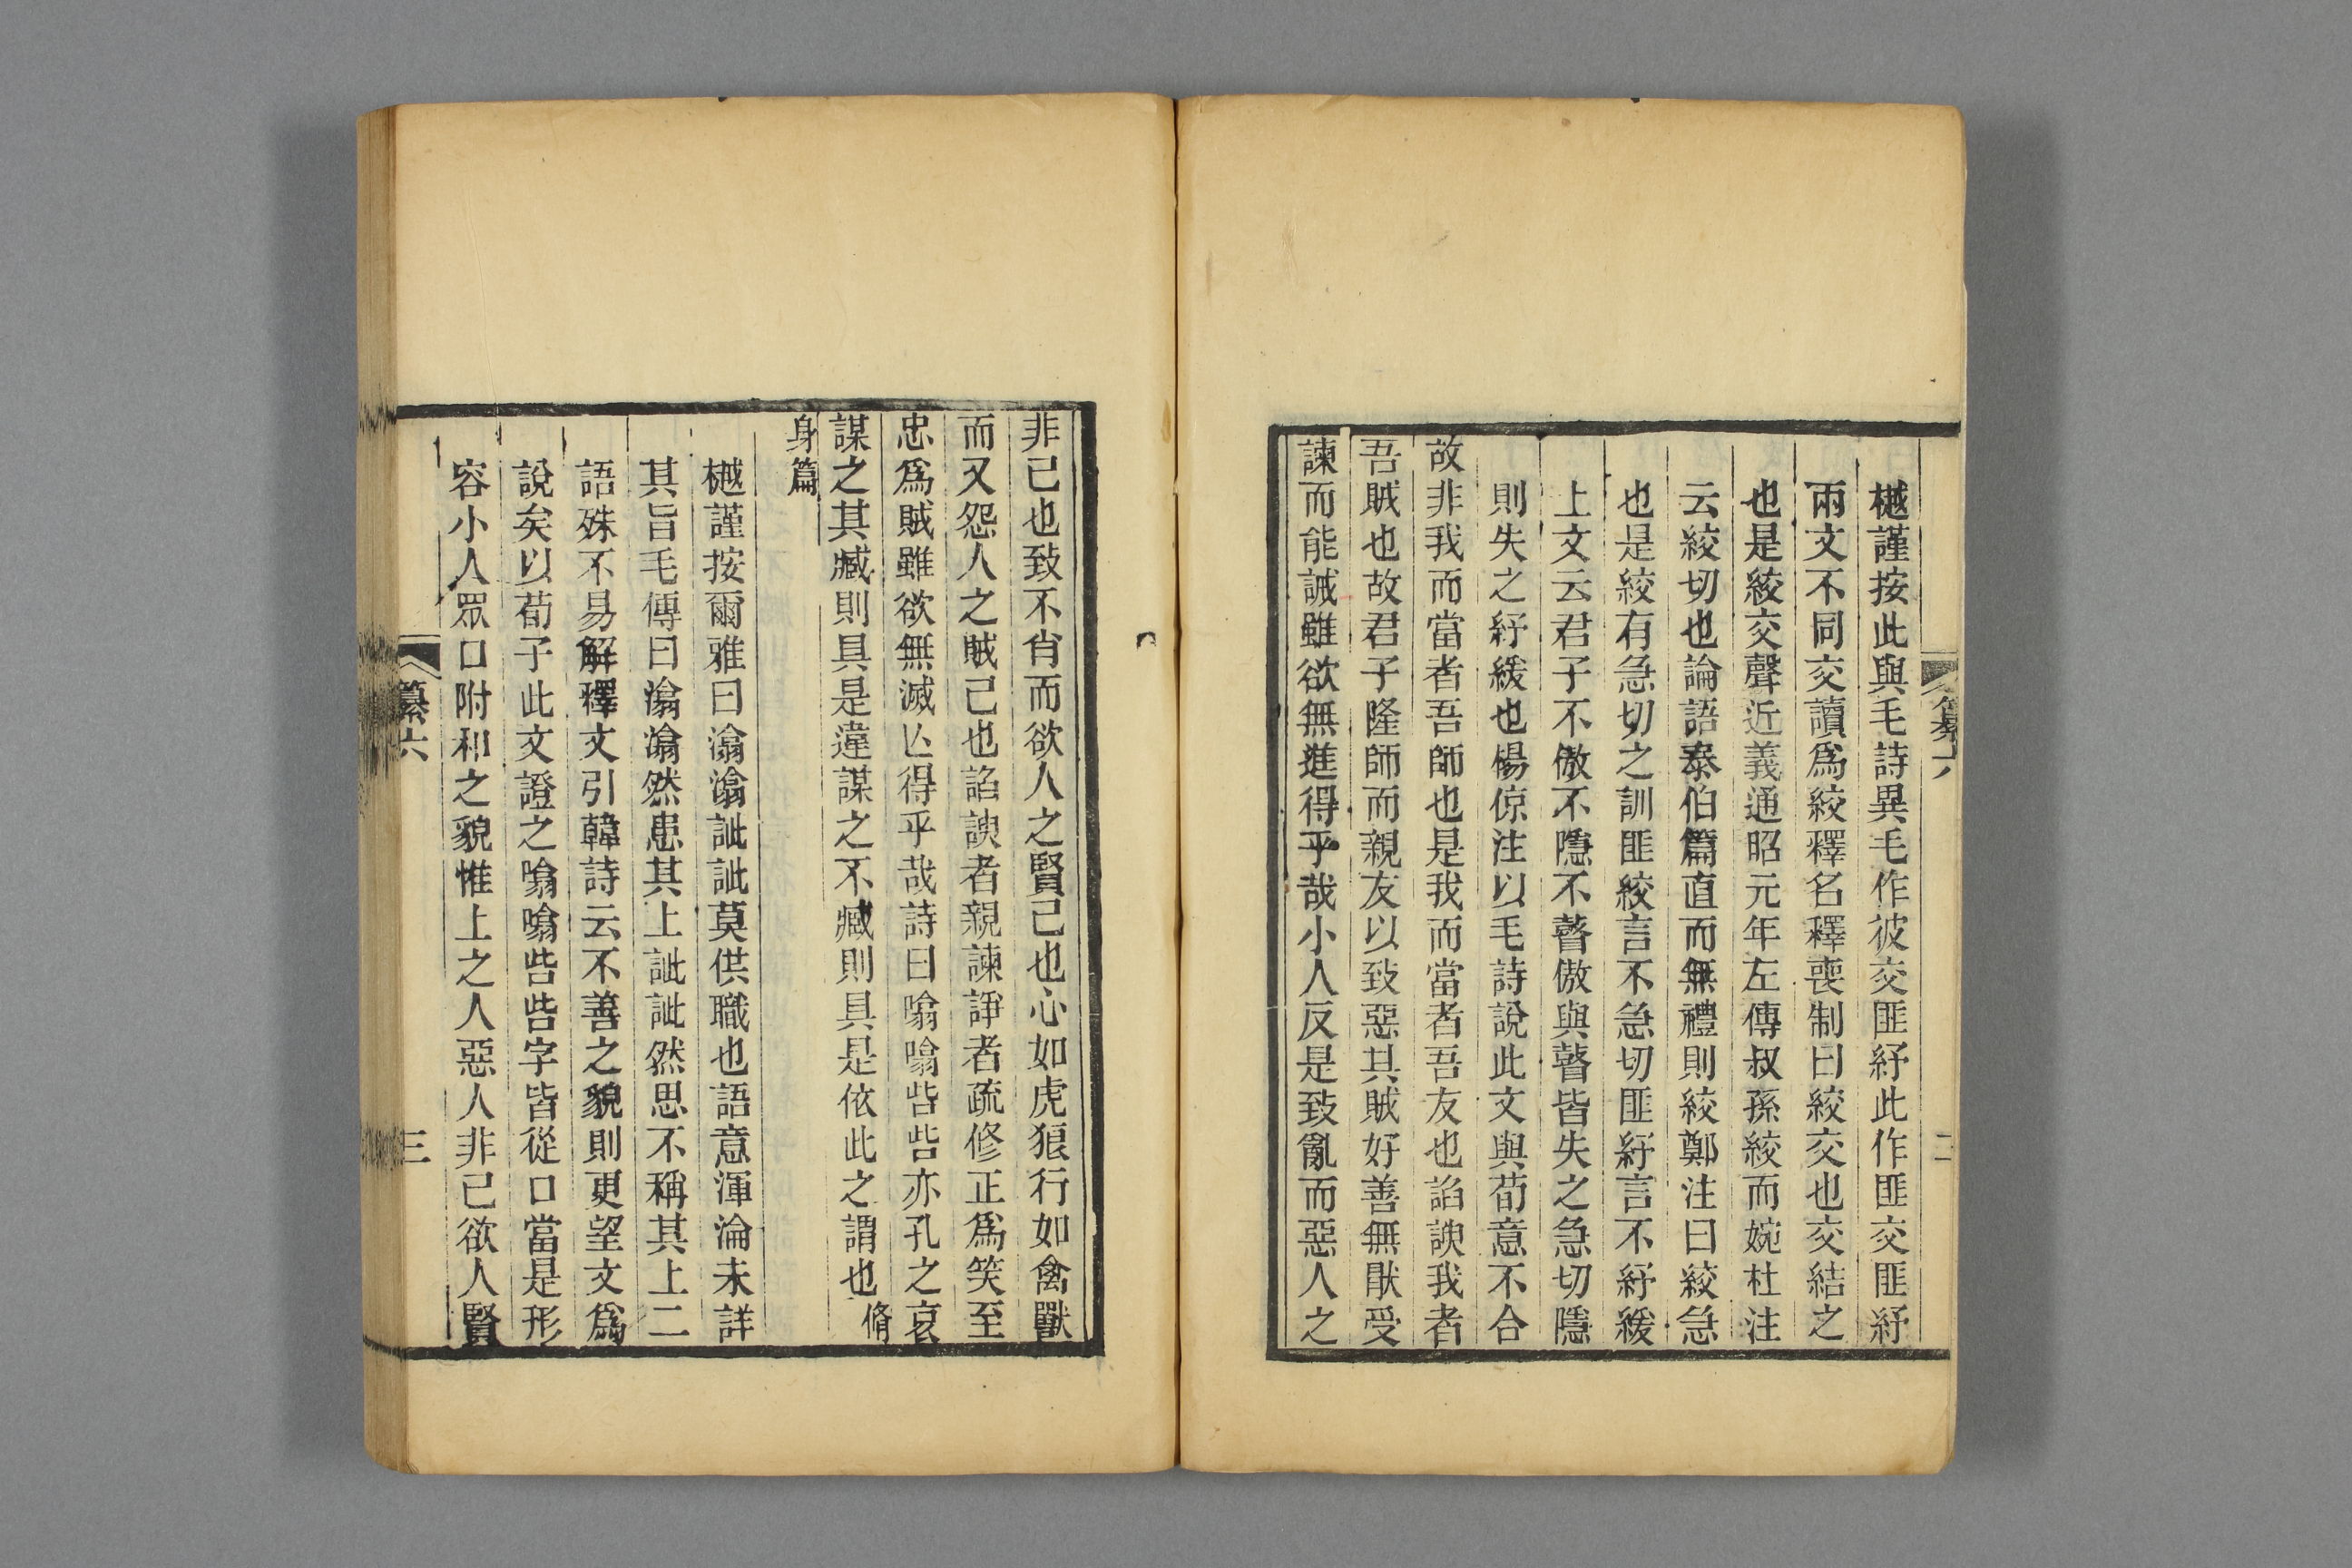 樾謹按此與毛詩異毛作彼交匪紓此作匪交匪紓
兩文不同交讀爲絞釋名釋喪制曰絞交也交結之
也是絞交聲近義通昭元年左傳叔孫絞而婉杜注
云絞切也論語泰伯篇直而無禮則絞鄭注曰絞急
也是絞有急切之訓匪絞言不急切匪紓言不紓緩
上文云君子不傲不隱不瞽傲與瞽皆失之急切隱
則失之紓緩也楊倞注以毛詩說此文與荀意不合
故非我而當者吾師也是我而當者吾友也諂諛我者
吾賊也故君子隆師而親友以致惡其賊好善無猒受
諫而能誡雖欲無進得乎哉小人反是致亂而惡人之
二
非己也致不肖而欲人之賢己也心如虎狼行如禽獸
而又怨人之賊己也諂諛者親諫諍者疏修正爲笑至
忠爲賊雖欲無滅亾得乎哉詩曰噏噏呰呰亦孔之哀
謀之其臧則具是違謀之不臧則具是依此之謂也脩
身篇
樾謹按爾雅曰潝潝訿訿莫供職也語意渾淪未詳
其旨毛傳曰潝潝然患其上訿訿然思不稱其上二
語殊不易解釋文引韓詩云不善之貌則更望文爲
說矣以荀子此文證之噏噏呰呰字皆從口當是形
容小人眾口附和之貌惟上之人惡人非己欲人賢
纂六
三